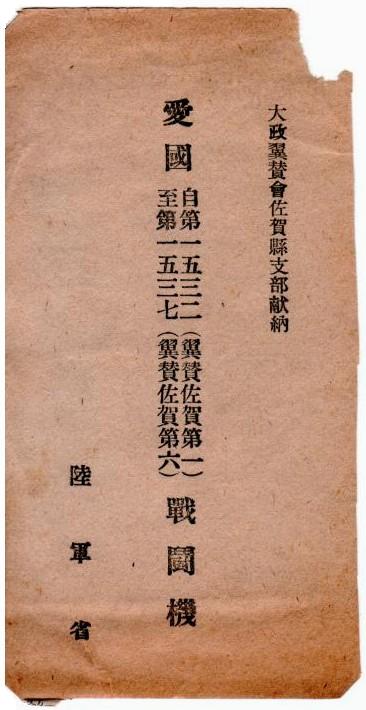 大政翼賛會佐賀縣支部献納
愛國 自第一五三二（翼賛佐賀第一）
至第一五三七（翼賛佐賀第六） 戰鬪機
陸軍省